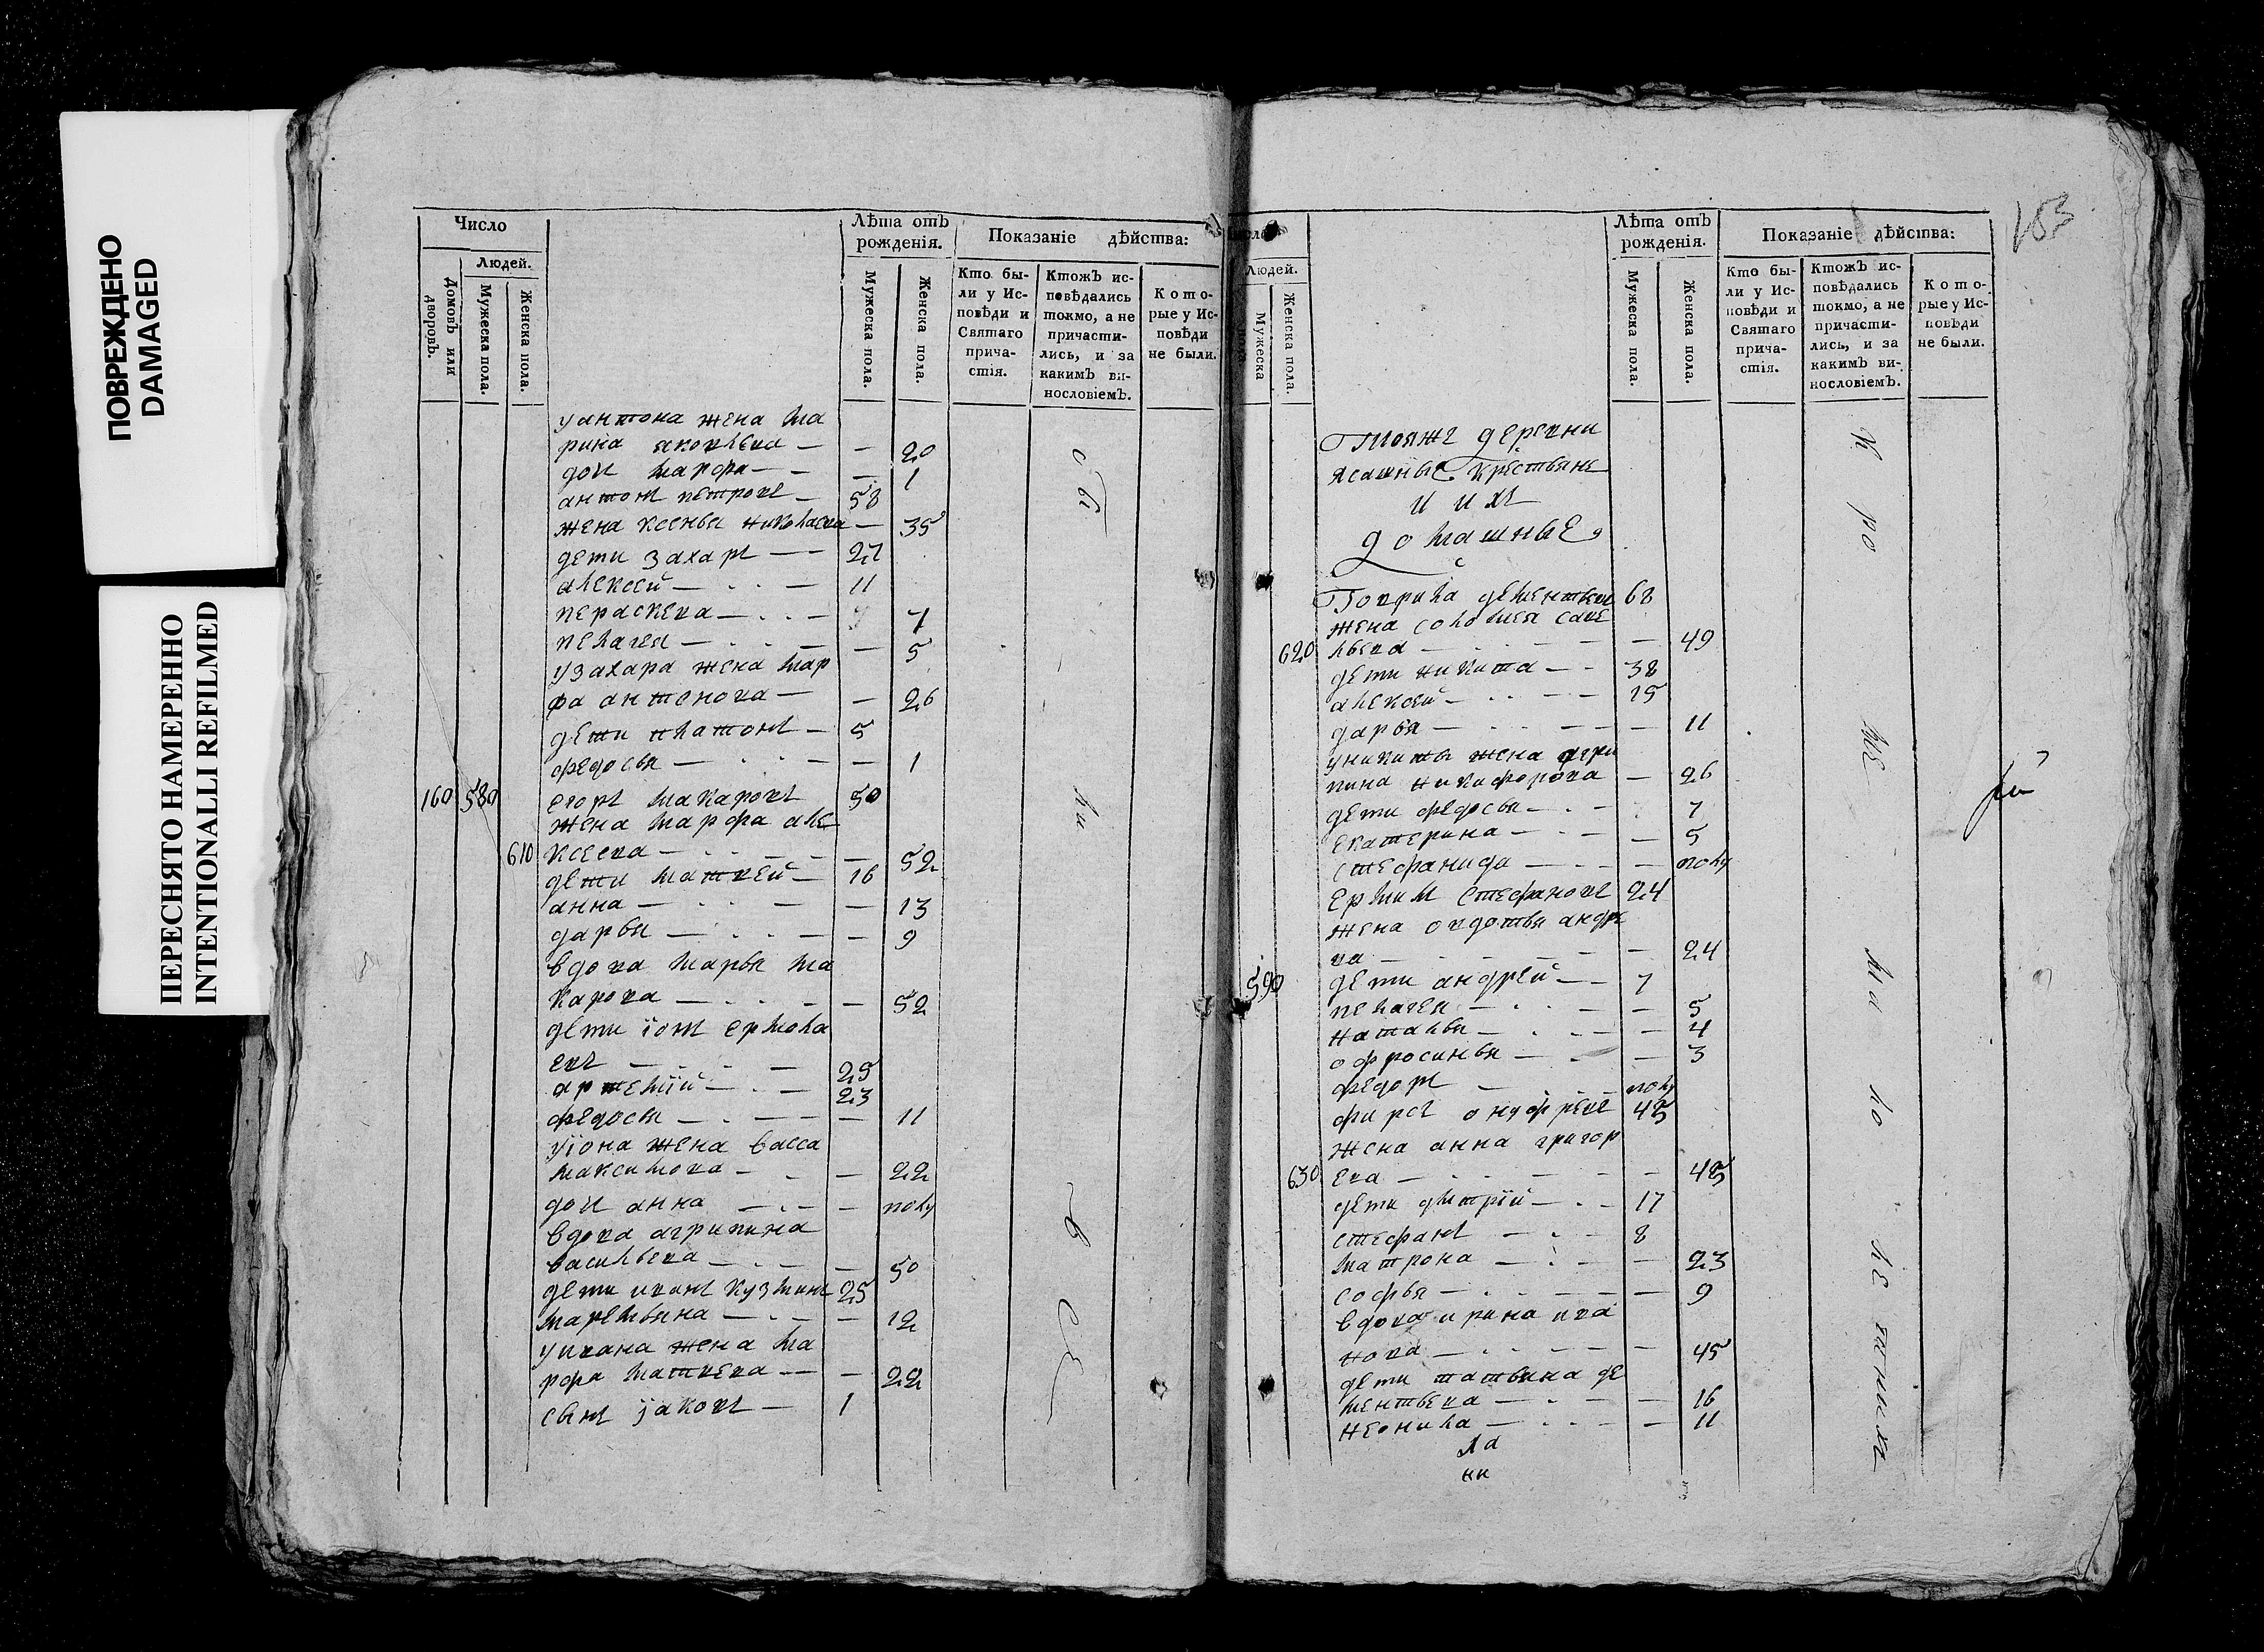 ПОВРЕЖДЕНО
DAMAGED
ПЕРЕСНЯТО НАМЕРЕННО
INTENTIONALLI REFILMED
Число
Людей.
Домовъ или дворовъ.
Мужеска пола.
Женска пола.
Лѣта отъ рожденія.
Мужеска пола.
Женска пола.
Показаніе дѣйства:
Кто бы-
ли у Ис-
повѣди и
Святаго
прича-
стія.
Ктожъ ис-
повѣдались
токмо, а не
причасти-
лись, и за
какимъ ви-
нословіемъ.
Кото-
рые у Ис-
повѣди
не были.
у антона жена ма
рина яковлева — — 20
дочь марфа — — 1
антонъ петровъ — 58
жена ксенья николаева — 35
дети захаръ — — 27
алексей — 11
пераскева — 7
пелагея — — 5
у захара жена мар
фа антонова — — 26
дети платонъ — 5
федосья — — 1
160 580 егоръ макаровъ 50
жена марфа але
610 ксеева — — 52
дети матвей — 16
анна — — 13
дарья — — 9
вдова марья ма
карова — — 52
дети їонъ ермола
евъ — 25
артемїй — 23
федосья — — 11
у їона жена васса
максимова — — 22
дочь анна — — полу
вдова агрипина
васильева — — 50
дети иванъ кузминъ 25
маремьяна — — 12
у ивана жена ма
рфа матвеева — — 22
сынъ їаковъ — 1
153
Людей.
Мужеска пола
Женска пола.
Лѣта отъ рожденія.
Мужеска пола.
Женска пола.
Показаніе дѣйства:
Кто бы-
ли у Ис-
повѣди и
Святаго
прича-
стія.
Ктожъ ис-
повѣдались
токмо, а не
причасти-
лись, и за
какимъ ви-
нословіемъ.
Кото-
рые у Ис-
повѣди
не были.
Тояжъ деревни
ясашные крестьяне
и ихъ
домашные
Гаврила дементьевъ 68
жена соломея саве
620 льева — — 49
дети никита — — 38
алексей — 15
дарья — — 11
у никиты жена агри
пина никифорова — 26
дети федосья — 7
екатерина — — 5
стефанида — — полу
ермилъ стефановъ 24
жена овдотья андре
ва — — 24
590 дети андрей — — 7
пелагея — — 5
наталья — — 4
офросинья — — 3
федоръ — полу
фирсъ онуфрїевъ 45
жена анна григор
630 ева — — 45
дети дмитрїй — 17
стефанъ — 8
матрона — — 23
софья — — 9
вдова ирина ива
нова — — 45
дети татьяна де
ментьева — — 16
неонила — — 11